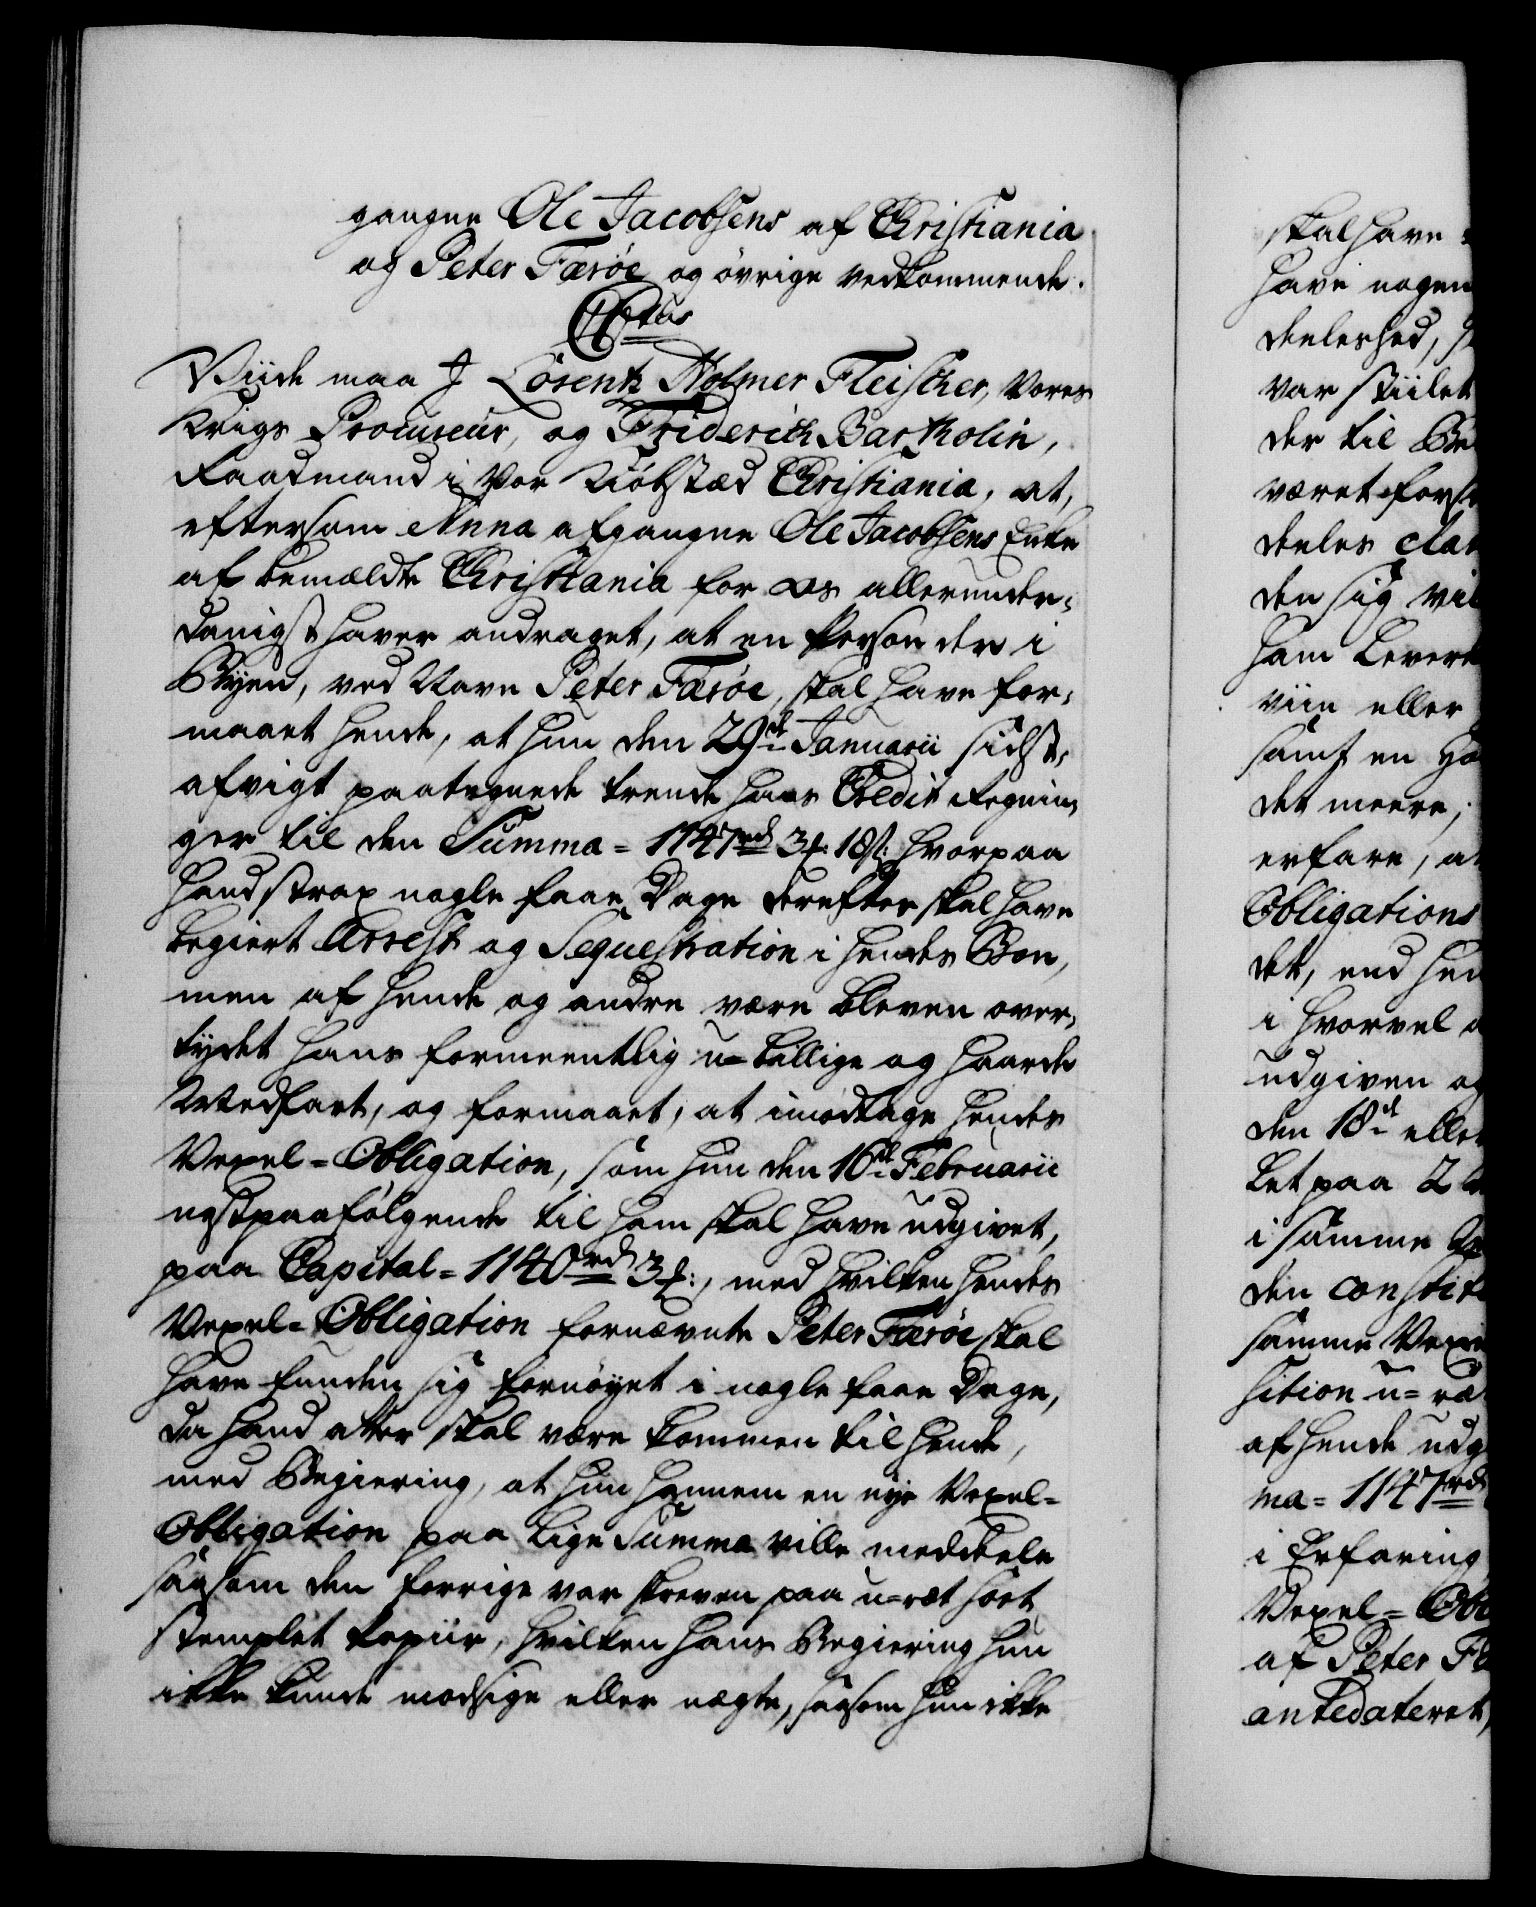 gangne Ole Jacobsens af Christiania
og Peter Færöe og övrige vedkommende.
Viide maa I Lorentz Holmer Fleischer, Vores
Krigs Procureur, og Friderich Bartholin,
Raadmand i Vor Kiöbstæd Christiania, at,
eftersom Anna afgangne Ole Jacobsens Enke
af bemældte Christiania for os allerunder-
danigst haver andraget, at en Person der i
Byen, ved Navn Peter Færöe, skal have for-
maaet hende, at hun den 29de Januarii sidst-
afvigt paategnede trende hans Credit Regnin-
ger til den Summa = 1147rd 3 18 hvorpaa
hand strax nogle faae Dage derefter skal have
begiert Arrest og Sequestration i hendes Boe,
men af hende og andre være bleven over-
tydet hans formeentlig u-billige og haarde
Medfart, og formaaet, at imodtage hendes
Vexel-Obligation, som hun den 16de Februarii
nestpaafölgende til ham skal have udgivet,
paa Capital = 1140rd 3, med hvilken hendes
Vexel-Obligation fornævnte Peter Færöe skal
have funden sig fornöyet i nogle faae Dage,
da hand atter skal være kommen til hende,
med Begiering, at hun hannem en nye Vexel-
Obligation paa lige Summa ville meddeele
saasom den forrige var skreven paa u-ræt sort
stemplet Papiir, hvilken hans Begiering hun
ikke kunde modsige eller nægte, saasom hun ikke
skal have
have nogen
deeleshed,
var stiilet
der til
været
deeles
den sig
ham
viin eller
samt en
det meere;
erfare,
Obligations
det, end
i hvorvel
udgiven og
den 18de eller
let paa 2
i samme
den
samme
sition u-
af hende
ma = 1147rd
i Erfaring
Vexel-
af Peter
antedateret,